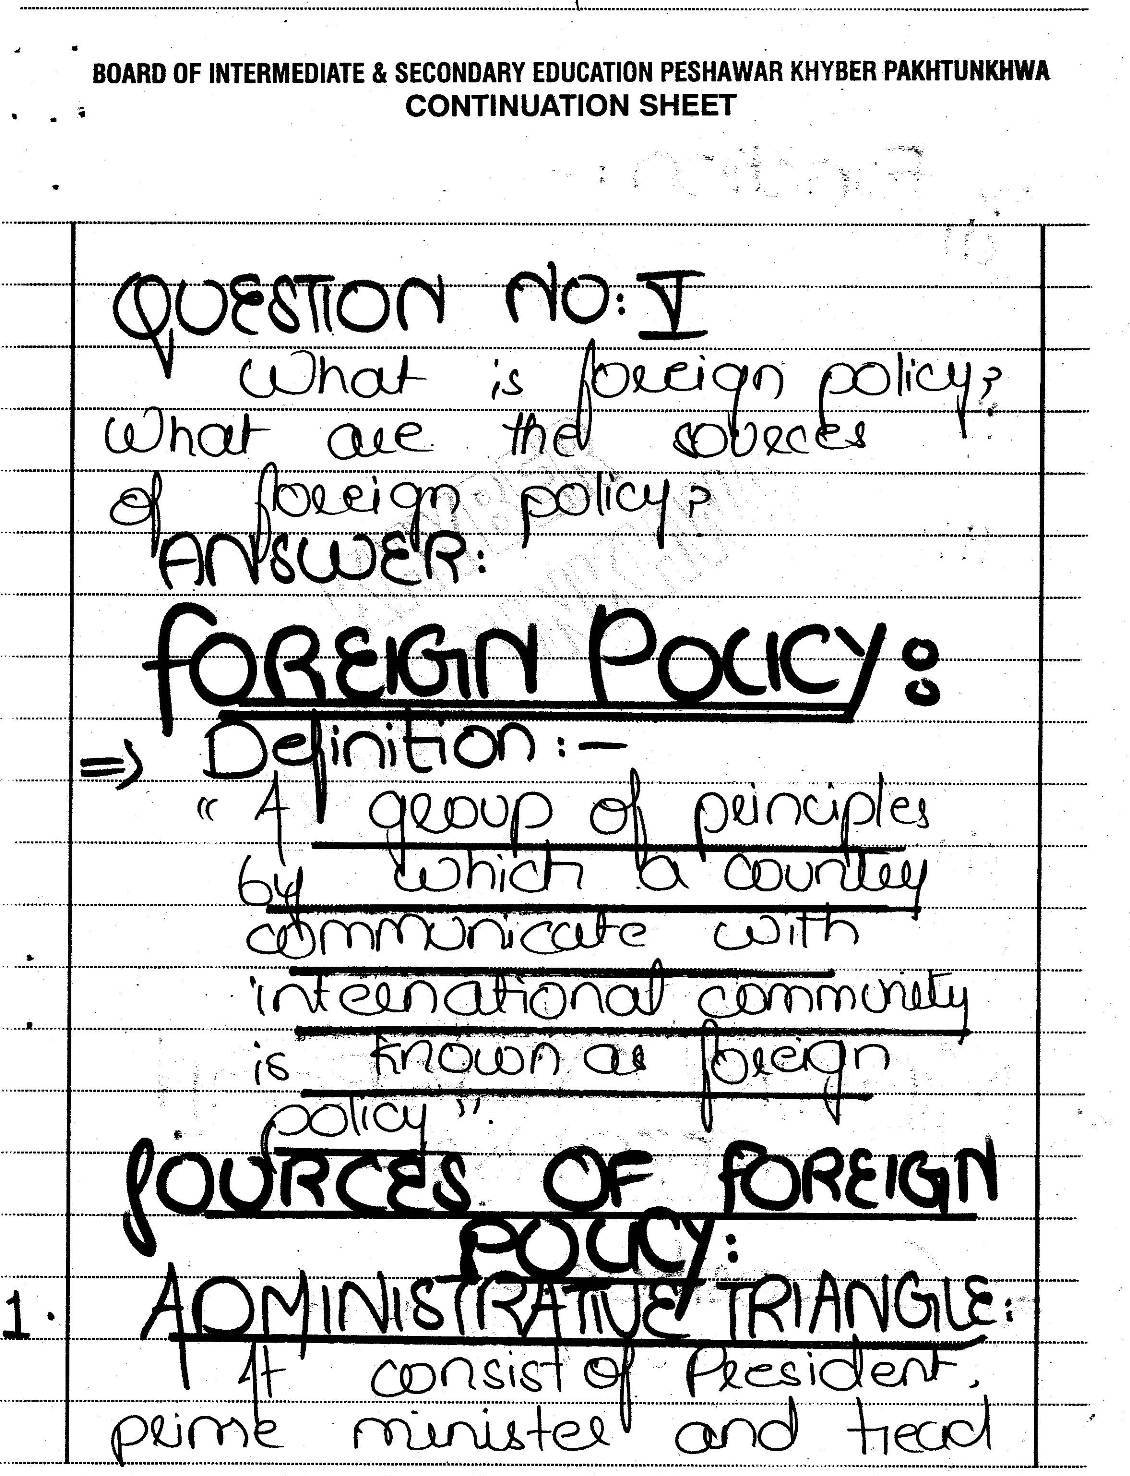 BOARD OF INTERMEDIATE & SECONDARY EDUCATION PESHAWAR KHYBER PAKHTUNKHWA
CONTINUATION SHEET
QUESTION NO: V
What is foreign policy?
What are the sources
of foreign policy?
ANSWER:
FOREIGN POLICY:
=> Definition :-
"A group of principles
by which a country
communicate with
international community
is known as foreign
policy".
SOURCES OF FOREIGN
POLICY:
1. ADMINISTRATIVE TRIANGLE:
It consist of President,
prime minister and head